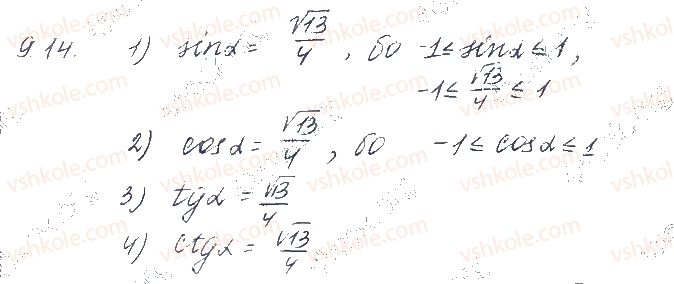 9.14. 1) sinα = √13/4, бо -1 ≤ sinα ≤ 1,
-1 ≤ √13/4 ≤ 1
2) cosα = √13/4, бо -1 ≤ cosα ≤ 1
3) tgα = √13/4
4) ctgα = √13/4